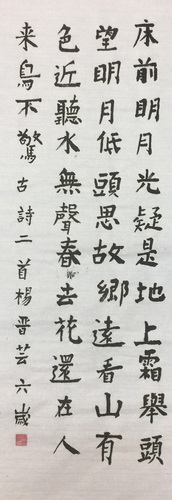 床前明月光疑是地上霜舉頭
望明月低頭思故鄉遠看山有
色近聽水無聲春去花還在人
来鳥不驚古詩二首楊晋芸六歲